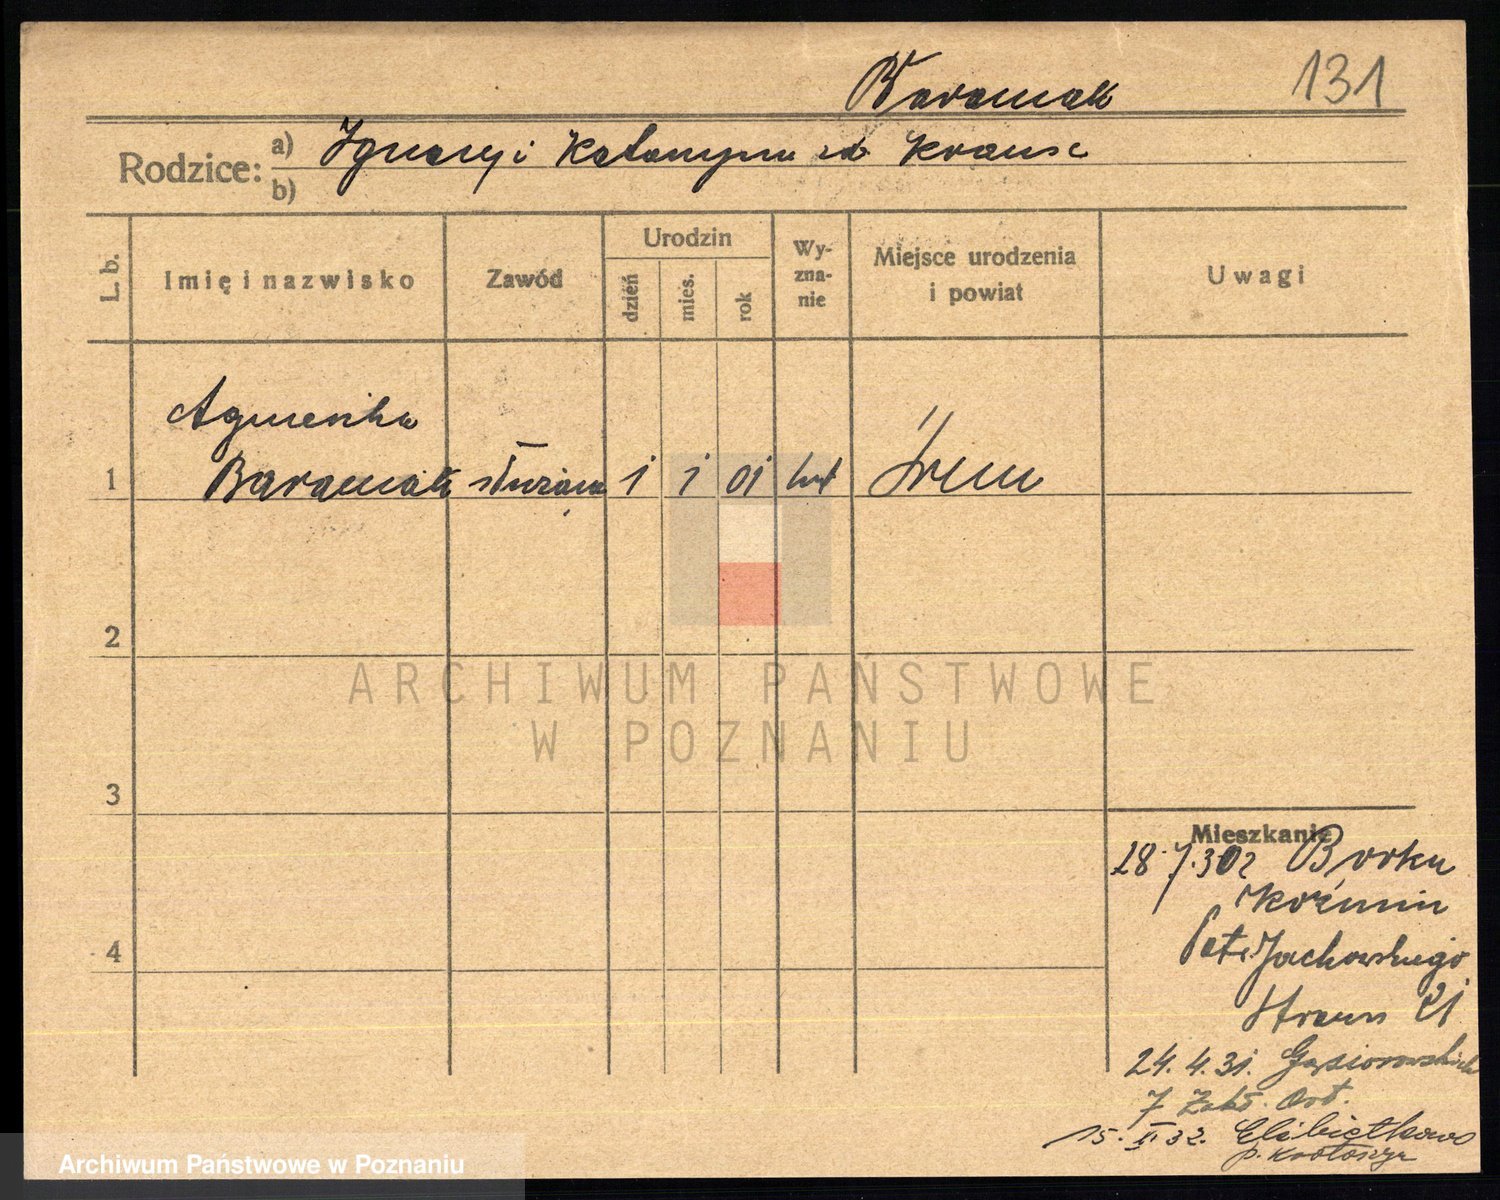 Baraniak 131
Rodzice: a) Ignacy i Katarzyna zd Krause
b)
L. b. Imię i nazwisko Zawód Urodzin dzień mies. rok Wy-zna-nie Miejsce urodzenia i powiat Uwagi
Agnieszka
1 Baraniak służąca 1 1 01 kat Śrem
2
3
4
Mieszkanie
28.7.30 z Borku
Koźmin
Jackowskiego
21
24.4.31. Gąsiorowskich
7 Zakł. Ort.
15. 32. Elżbietkowo
p. Krotoszyn
ARCHIWUM PAŃSTWOWE
W POZNANIU
Archiwum Państwowe w Poznaniu